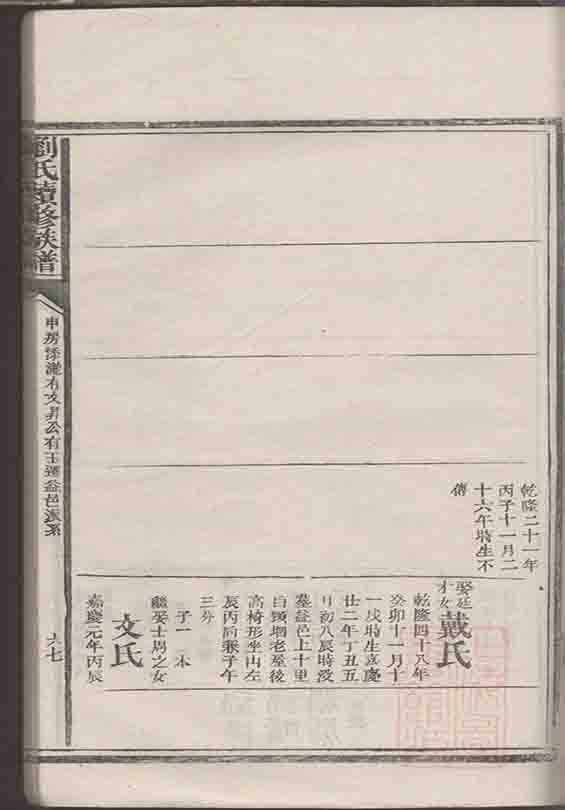 乾隆二十一年
丙子十一月二
十六午時生不
傳
娶廷
才女戴氏
乾隆四十八年
癸卯十一月十
一戌時生嘉慶
廿二年丁丑五
月初八辰時沒
墓益邑上十里
白頭堌老屋後
高椅形坐山左
辰丙向兼子午
三分
子一 本
繼娶士周之女
文氏
嘉慶元年丙辰
劉氏續修族譜
申房 有文昇公有玉遷益邑派系
六七